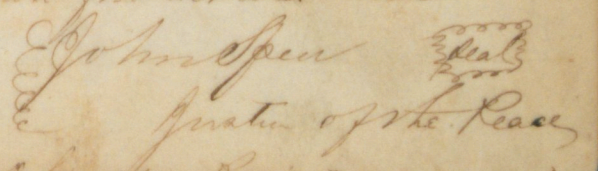 John Speer Seal
Justice of the Peace